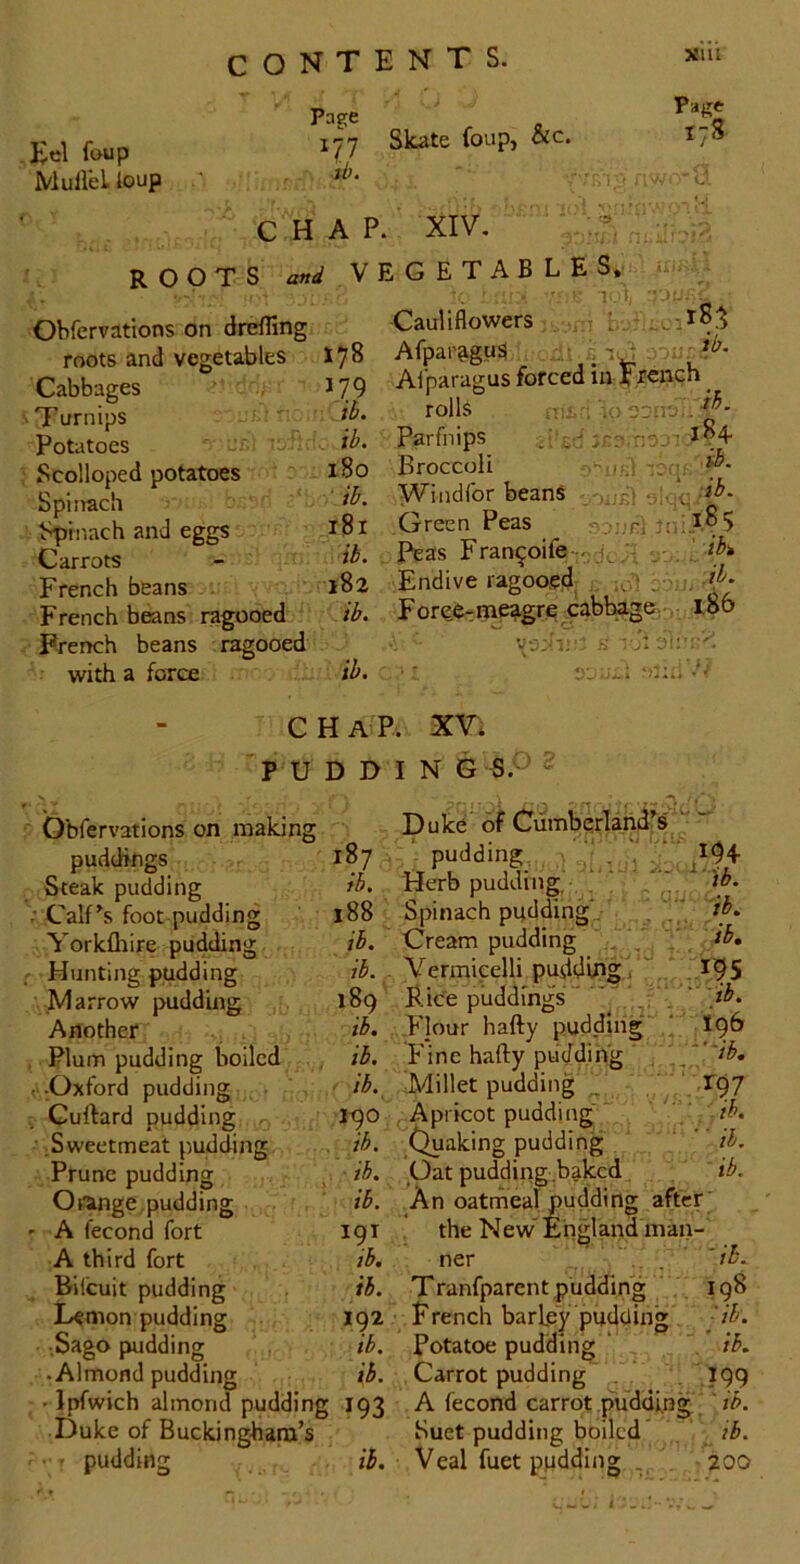 CONTENTS.
xiii
Page
Eel foup 177
Muffel foup ib.
Page
Skate foup, &c. 178
CHAP. XIV.
ROOTS and VEGETABLES.
Obfervations on dreffing
roots and vegetables 178
Cabbages 179
Turnips ib.
Potatoes ib.
Scolloped potatoes 180
Spinach ib.
Spinach and eggs 181
Carrots - ib.
French beans 182
French beans ragooed ib.
French beans ragooed
with a force ib.
Cauliflowers 183
Afparagus ib.
Afparagus forced in French
rolls ib.
Parfnips 184
Broccoli ib.
Windfor beans ib.
Green Peas 185
Peas Françoife ib.
Endive ragooed ib.
Force-meagre cabbage 186
CHAP. XV.
PUDDINGS.
Obfervations on making
puddings 187
Steak pudding ib.
Calf's foot pudding 188
Yorkfhire pudding ib.
Hunting pudding ib.
Marrow pudding 189
Another ib.
Plum pudding boiled ib.
Oxford pudding ib.
Cuftard pudding 190
Sweetmeat pudding ib.
Prune pudding ib.
Orange pudding ib.
A fecond fort 191
A third fort ib.
Bifcuit pudding ib.
Lemon pudding 192
Sago pudding ib.
Almond pudding ib.
Ipfwich almond pudding 193
Duke of Buckingham's
pudding ib.
Duke of Cumberland's
pudding 194
Herb pudding ib.
Spinach pudding ib.
Cream pudding ib.
Vermicelli pudding 195
Rice puddings ib.
Flour hafty pudding 196
Fine hafty pudding ib.
Millet pudding 197
Apricot pudding ib.
Quaking pudding ib.
Oat pudding baked ib.
An oatmeal pudding after
the New England man-
ner ib.
Tranfparent pudding 198
French barley pudding ib.
Potatoe pudding ib.
Carrot pudding 199
A fecond carrot pudding ib.
Suet pudding boiled ib.
Veal fuet pudding 200